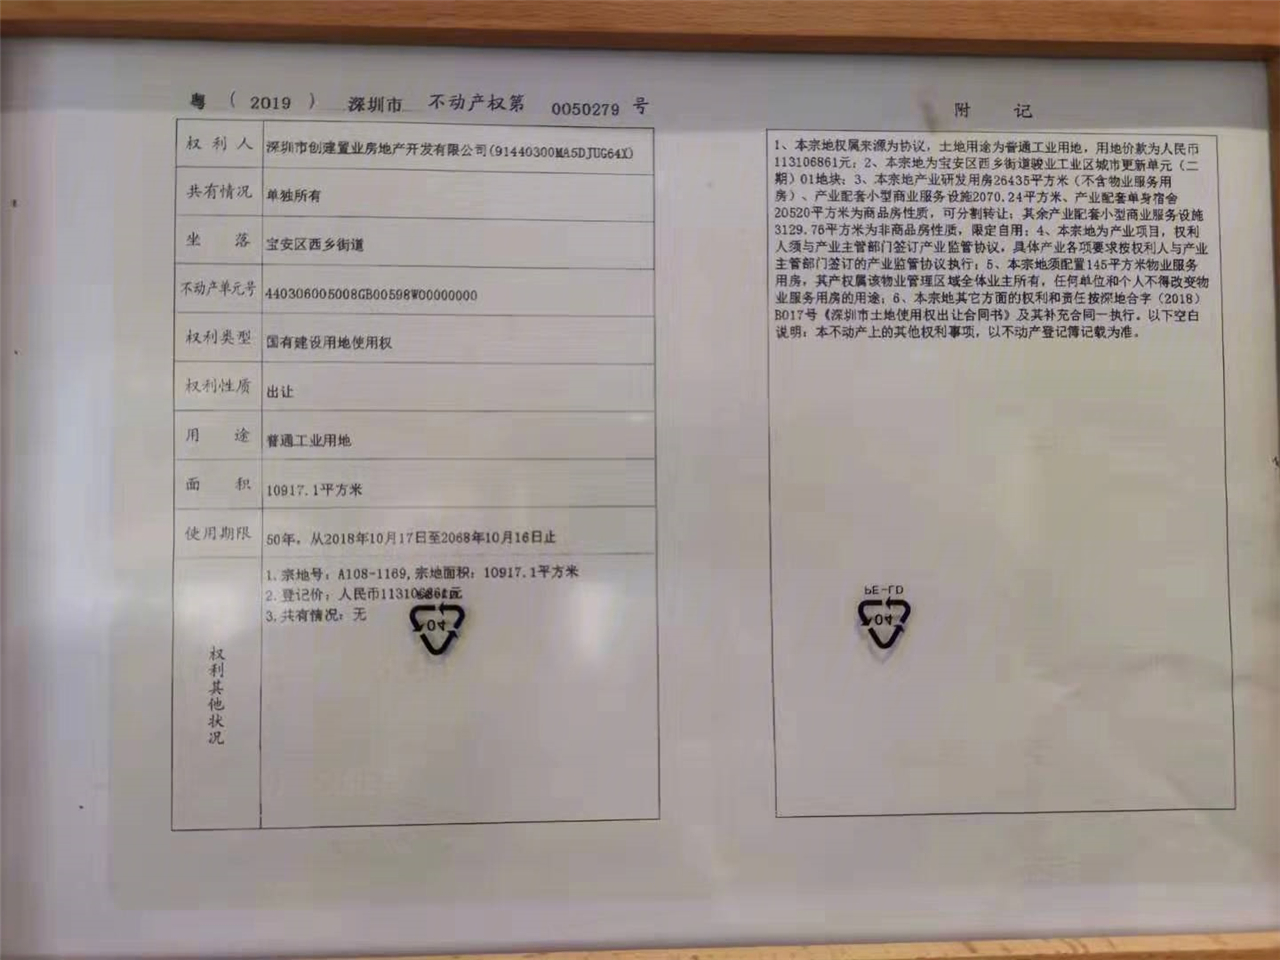 粤 ( 2019 ) 深圳市 不动产权第 0050279 号
权利人 深圳市创建置业房地产开发有限公司(91440300MA5DJUG64X)
共有情况 单独所有
坐落 宝安区西乡街道
不动产单元号 440306005008GB00598W00000000
权利类型 国有建设用地使用权
权利性质 出让
用途 普通工业用地
面积 10917.1平方米
使用期限 50年，从2018年10月17日至2068年10月16日止
权利其他状况
1.宗地号：A108-1169,宗地面积：10917.1平方米
2.登记价：人民币113106861元
3.共有情况：无
04
附记
1、本宗地权属来源为协议，土地用途为普通工业用地，用地价款为人民币
113106861元；2、本宗地为宝安区西乡街道骏业工业区城市更新单元（二
期）01地块；3、本宗地产业研发用房26435平方米（不含物业服务用
房）、产业配套小型商业服务设施2070.24平方米、产业配套单身宿舍
20520平方米为商品房性质，可分割转让；其余产业配套小型商业服务设施
3129.76平方米为非商品房性质，限定自用；4、本宗地为产业项目，权利
人须与产业主管部门签订产业监管协议，具体产业各项要求按权利人与产业
主管部门签订的产业监管协议执行；5、本宗地须配置145平方米物业服务
用房，其产权属该物业管理区域全体业主所有，任何单位和个人不得改变物
业服务用房的用途；6、本宗地其它方面的权利和责任按深地合字（2018）
B017号《深圳市土地使用权出让合同书》及其补充合同一执行。以下空白
说明：本不动产上的其他权利事项，以不动产登记簿记载为准。
PE-LD
04